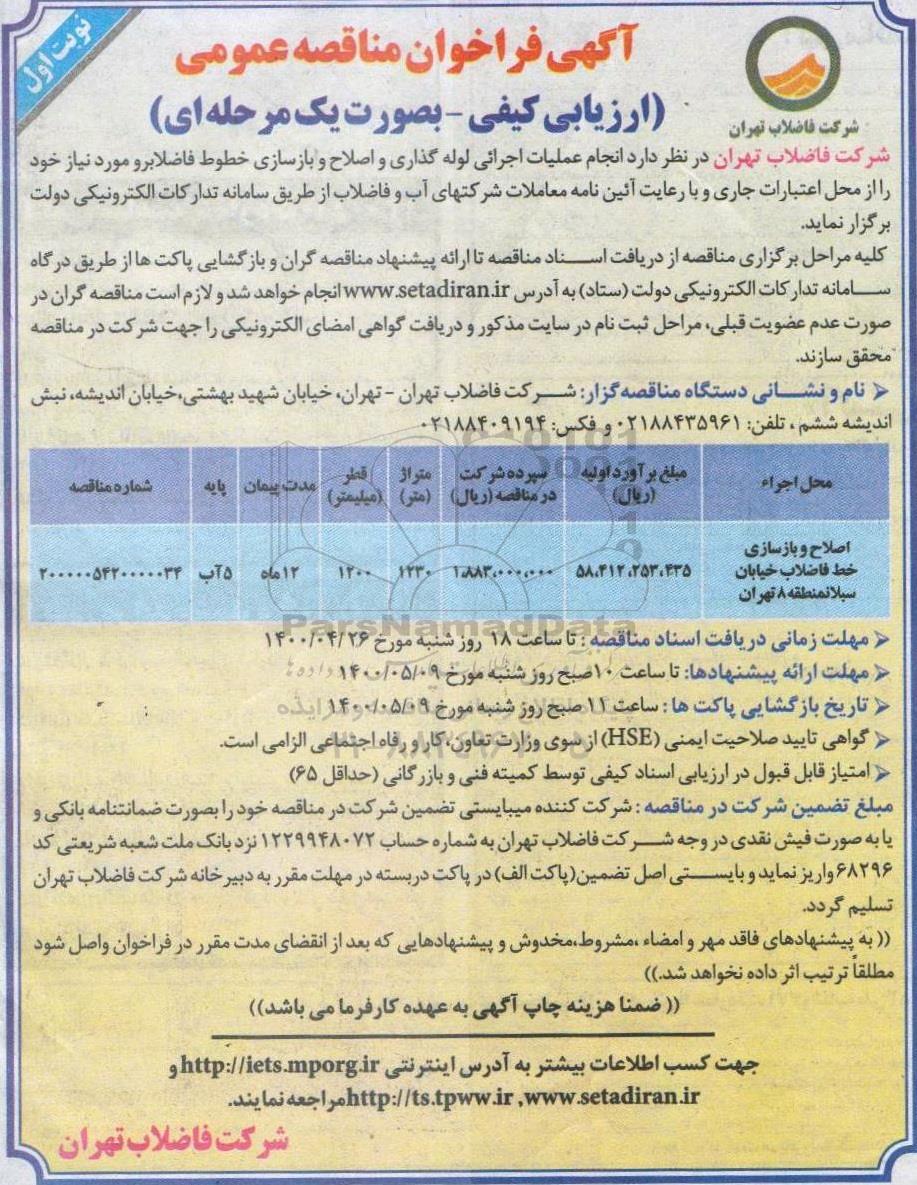 نوبت اول
آگهی فراخوان مناقصه عمومی
(ارزیابی کیفی - بصورت یک مرحله ای)
شرکت فاضلاب تهران
شرکت فاضلاب تهران در نظر دارد انجام عملیات اجرائی لوله گذاری و اصلاح و بازسازی خطوط فاضلابرو مورد نیاز خود
را از محل اعتبارات جاری و با رعایت آئین نامه معاملات شرکتهای آب و فاضلاب از طریق سامانه تدارکات الکترونیکی دولت
برگزار نماید.
کلیه مراحل برگزاری مناقصه از دریافت اسناد مناقصه تا ارائه پیشنهاد مناقصه گران و بازگشایی پاکت ها از طریق درگاه
سامانه تدارکات الکترونیکی دولت (ستاد) به آدرس www.setadiran.ir انجام خواهد شد و لازم است مناقصه گران در
صورت عدم عضویت قبلی، مراحل ثبت نام در سایت مذکور و دریافت گواهی امضای الکترونیکی را جهت شرکت در مناقصه
محقق سازند.
نام و نشانی دستگاه مناقصه‌گزار: شرکت فاضلاب تهران - تهران، خیابان شهید بهشتی،خیابان اندیشه، نبش
اندیشه ششم ، تلفن: ۰۲۱۸۸۴۳۵۹۶۱ و فکس: ۰۲۱۸۸۴۰۹۱۹۴
محل اجراء | مبلغ برآورد اولیه (ریال) | سپرده شرکت در مناقصه (ریال) | متراژ (متر) | قطر (میلیمتر) | مدت پیمان | پایه | شماره مناقصه
اصلاح و بازسازی خط فاضلاب خیابان سبلانمنطقه ۸ تهران | ۵۸،۴۱۲،۲۵۳،۴۳۵ | ۱،۸۸۳،۰۰۰،۰۰۰ | ۱۲۳۰ | ۱۲۰۰ | ۱۲ماه | ۵آب | ۲۰۰۰۰۰۵۴۲۰۰۰۰۰۳۴
ParsNamadData
مهلت زمانی دریافت اسناد مناقصه : تا ساعت ۱۸ روز شنبه مورخ ۱۴۰۰/۰۴/۲۶
مهلت ارائه پیشنهادها: تا ساعت ۱۰صبح روز شنبه مورخ ۱۴۰۰/۰۵/۰۹
تاریخ بازگشایی پاکت ها : ساعت ۱۱ صبح روز شنبه مورخ ۱۴۰۰/۰۵/۰۹
گواهی تایید صلاحیت ایمنی (HSE) از سوی وزارت تعاون،کار و رفاه اجتماعی الزامی است.
امتیاز قابل قبول در ارزیابی اسناد کیفی توسط کمیته فنی و بازرگانی (حداقل ۶۵)
مبلغ تضمین شرکت در مناقصه : شرکت کننده میبایستی تضمین شرکت در مناقصه خود را بصورت ضمانتنامه بانکی و
یا به صورت فیش نقدی در وجه شرکت فاضلاب تهران به شماره حساب ۱۲۲۹۹۴۸۰۷۲ نزد بانک ملت شعبه شریعتی کد
۶۸۲۹۶ واریز نماید و بایستی اصل تضمین(پاکت الف) در پاکت دربسته در مهلت مقرر به دبیرخانه شرکت فاضلاب تهران
تسلیم گردد.
(( به پیشنهادهای فاقد مهر و امضاء ،مشروط،مخدوش و پیشنهادهایی که بعد از انقضای مدت مقرر در فراخوان واصل شود
مطلقاً ترتیب اثر داده نخواهد شد.))
(( ضمنا هزینه چاپ آگهی به عهده کارفرما می باشد))
جهت کسب اطلاعات بیشتر به آدرس اینترنتی http://iets.mporg.ir و
http://ts.tpww.ir ,www.setadiran.ir مراجعه نمایند.
شرکت فاضلاب تهران